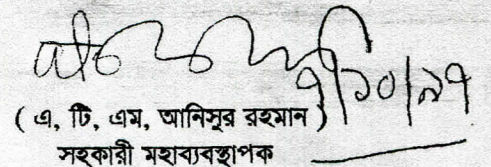 ৭/১০/৯৭
( এ, টি, এম, আনিসুর রহমান )
সহকারী মহাব্যবস্থাপক